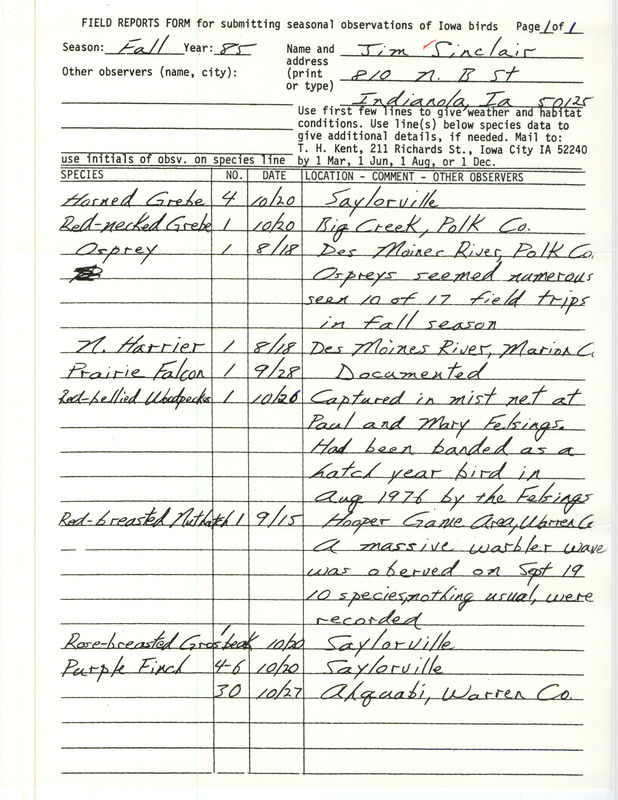 FIELD REPORTS FORM for submitting seasonal observations of Iowa birds Page 1 of 1
Season: Fall Year: 85 Name and Jim Sinclair
address
Other observers (name, city): (print 810 N. B St
or type)
Indianola, Ia 50125
Use first few lines to give weather and habitat
conditions. Use line(s) below species data to
give additional details, if needed. Mail to:
T. H. Kent, 211 Richards St., Iowa City IA 52240
use initials of obsv. on species line by 1 Mar, 1 Jun, 1 Aug, or 1 Dec.
SPECIES NO. DATE LOCATION - COMMENT - OTHER OBSERVERS
Horned Grebe 4 10/20 Saylorville
Red-necked Grebe 1 10/20 Big Creek, Polk Co.
Osprey 1 8/18 Des Moines River, Polk Co.
Ospreys seemed numerous
seen 10 of 17 field trips
in fall season
N. Harrier 1 8/18 Des Moines River, Marion C.
Prairie Falcon 1 9/28 Documented
Red-bellied Woodpecker 1 10/26 Captured in mist net at
Paul and Mary Felsings.
Had been banded as a
hatch year bird in
Aug 1976 by the Felsings
Red-breasted Nuthatch 1 9/15 Hooper Game Area, Warren Co
A massive warbler wave
was oberved on Sept 19
10 species, nothing usual, were
recorded
Rose-breasted Grosbeak 1 10/20 Saylorville
Purple Finch 4-6 10/20 Saylorville
30 10/27 Ahquabi, Warren Co.